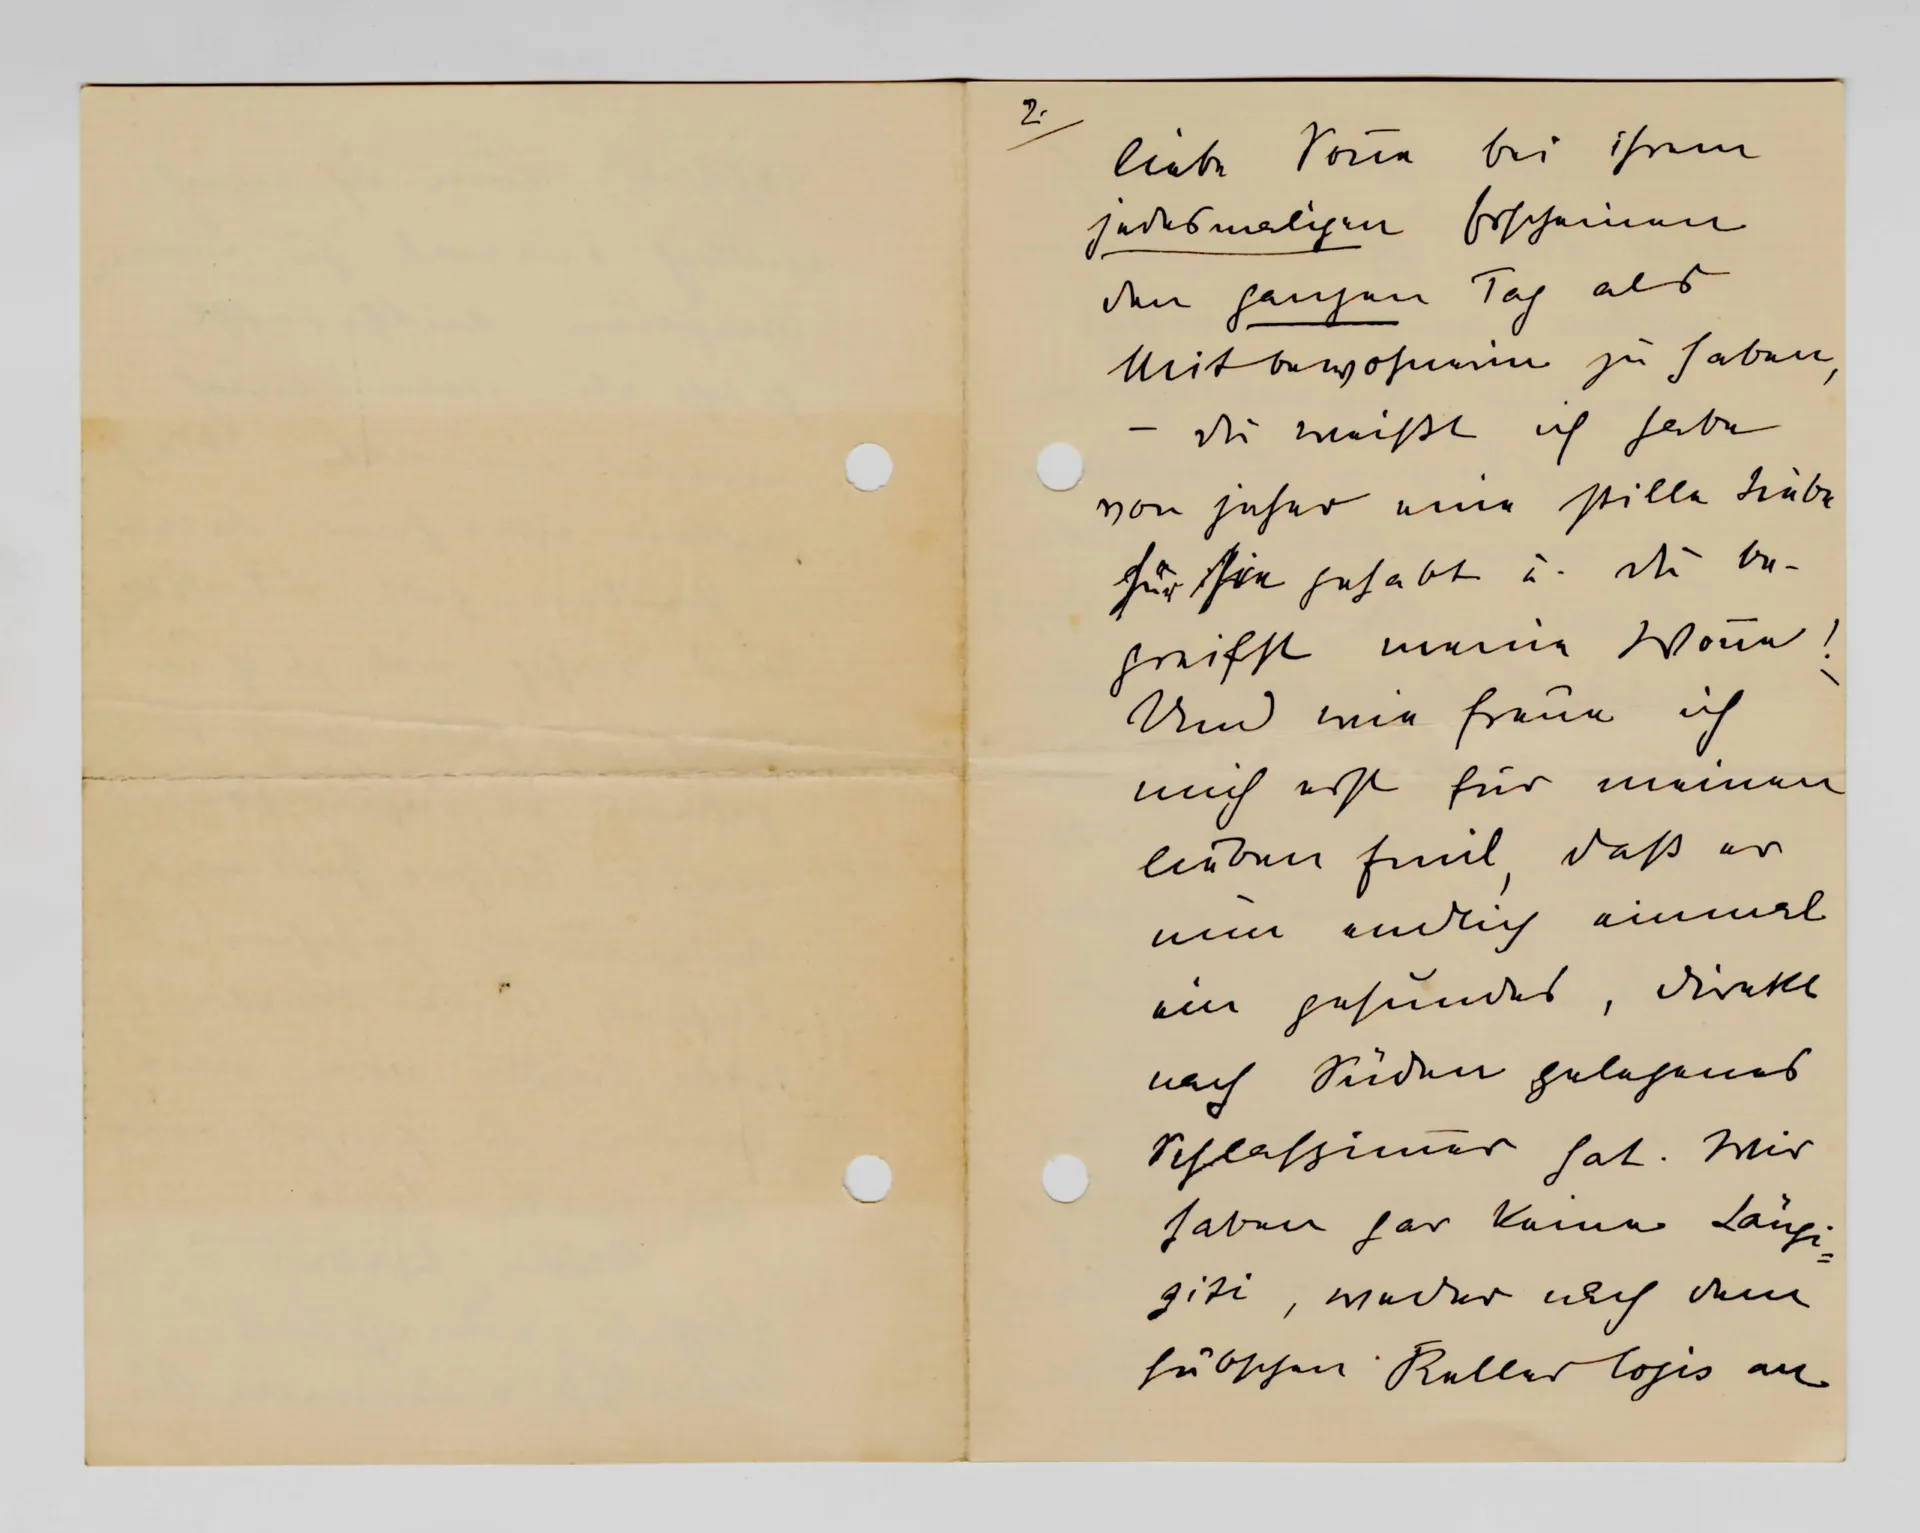 2.
liebe Sonne bei ihrem
jedesmaligen Erscheinen
den ganzen Tag als
Mitbewohnerin zu haben,
– du weißt ich habe
von jeher eine stille Liebe
für sie gehabt u. du be-
greifst meine Wonne!
Und wie freue ich
mich erst für meinen
lieben Emil, daß er
nun endlich einmal
ein gesundes, direkt
nach Süden gelegenes
Schlafzimmer hat. Wir
haben gar keine Längi=
ziti, weder nach dem
hübschen Keller logis an